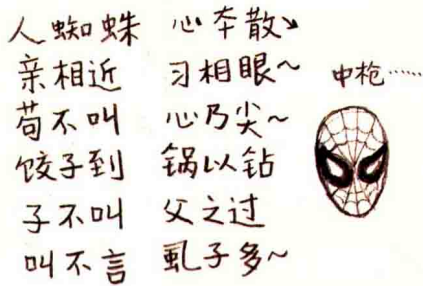 人蜘蛛 心夲散
亲相近 习相眼~
苟不叫 心乃尖~
饺子到 锅以钻
子不叫 父之过
叫不言 虱子多~
中枪……